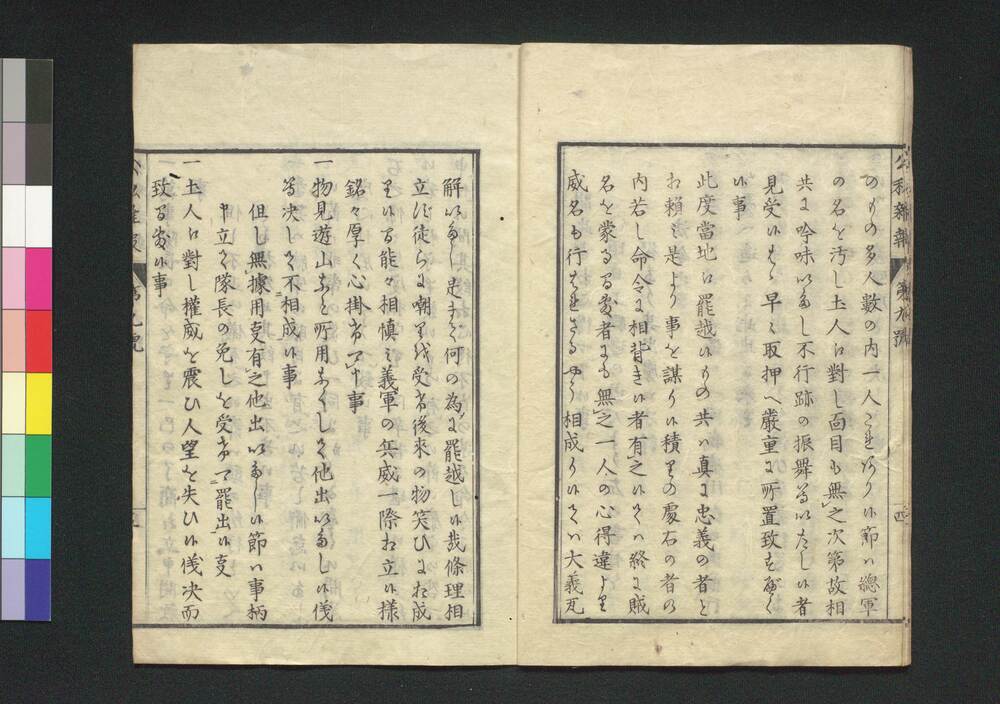 公私雑報 第九號
四
のものゝ多人數の内一人これあり候節ハ總軍
の名を汚し土人江對し面目も無之次第故相
共に吟味いたし不行跡の振舞等いたし候者
見受候はゞ早々取押へ嚴重に所置致すべく
候事
此度當地江罷越候もの共ハ真に忠義の者と
お賴み是より事を謀り候積りの處右の者の
内若し命令に相背き候者有之候てハ終に賊
名を蒙るゝ處者にも無之一人の心得違より
威名も行はれざるやう相成り候てハ大義瓦
解いたし足まで何の為に罷越し候哉條理相
立たず徒らに嘲りを受け後來の物笑ひにお成
り候る能々相慎み義軍の兵威一際お立候様
銘々厚く心掛あるべき事
一物見遊山なと所用なくして他出いたし候儀
等決して不相成候事
但し無據用事有之他出いたし候節ハ事柄
申立て隊長の免しを受けて罷出候事
一土人江對し權威を震ひ人望を失ひ候儀決而
致る敷候事